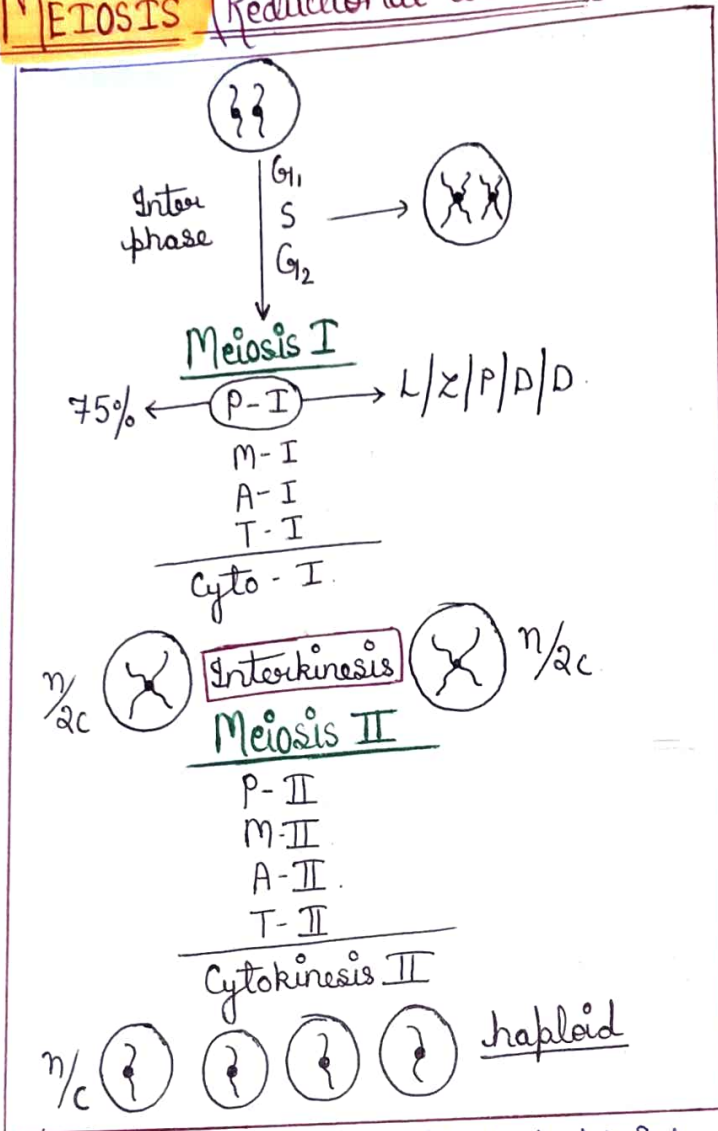 MEIOSIS (Reductional
G1,
Inter
phase
S
G2
Meiosis I
75% P-I L/Z/P/D/D.
M-I
A-I
T-I
Cyto-I.
n/2c Interkinesis n/2c
Meiosis II
P-II
M-II
A-II.
T-II
Cytokinesis II
n/c haploid